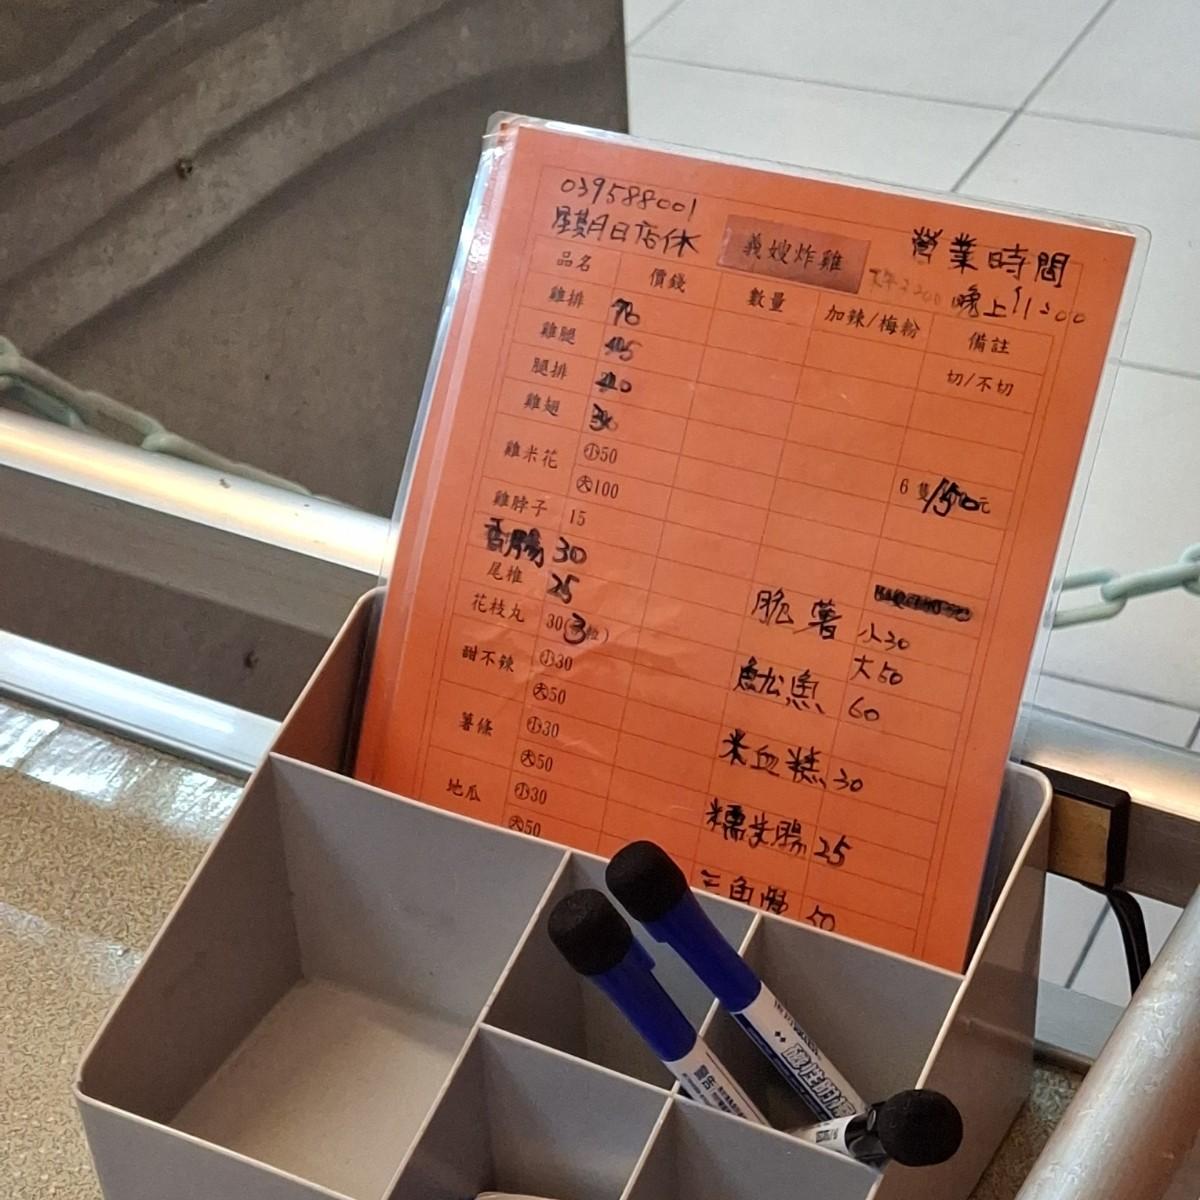 039588001
星期日店休
義嫂炸雞
營業時間
晚上11:00
品名 價錢 數量 加辣/梅粉 備註
雞排 切/不切
雞腿
腿排
雞翅 6隻/150元
雞米花 小50
大100
雞脖子 15
香腸 30
尾椎 25
花枝丸 30(3粒)
甜不辣 小30
大50
薯條 小30
大50
地瓜 小30
大50
脆薯 小30
大50
魷魚 60
米血糕 30
糯米腸 25
三角骨 50
警告
磁性